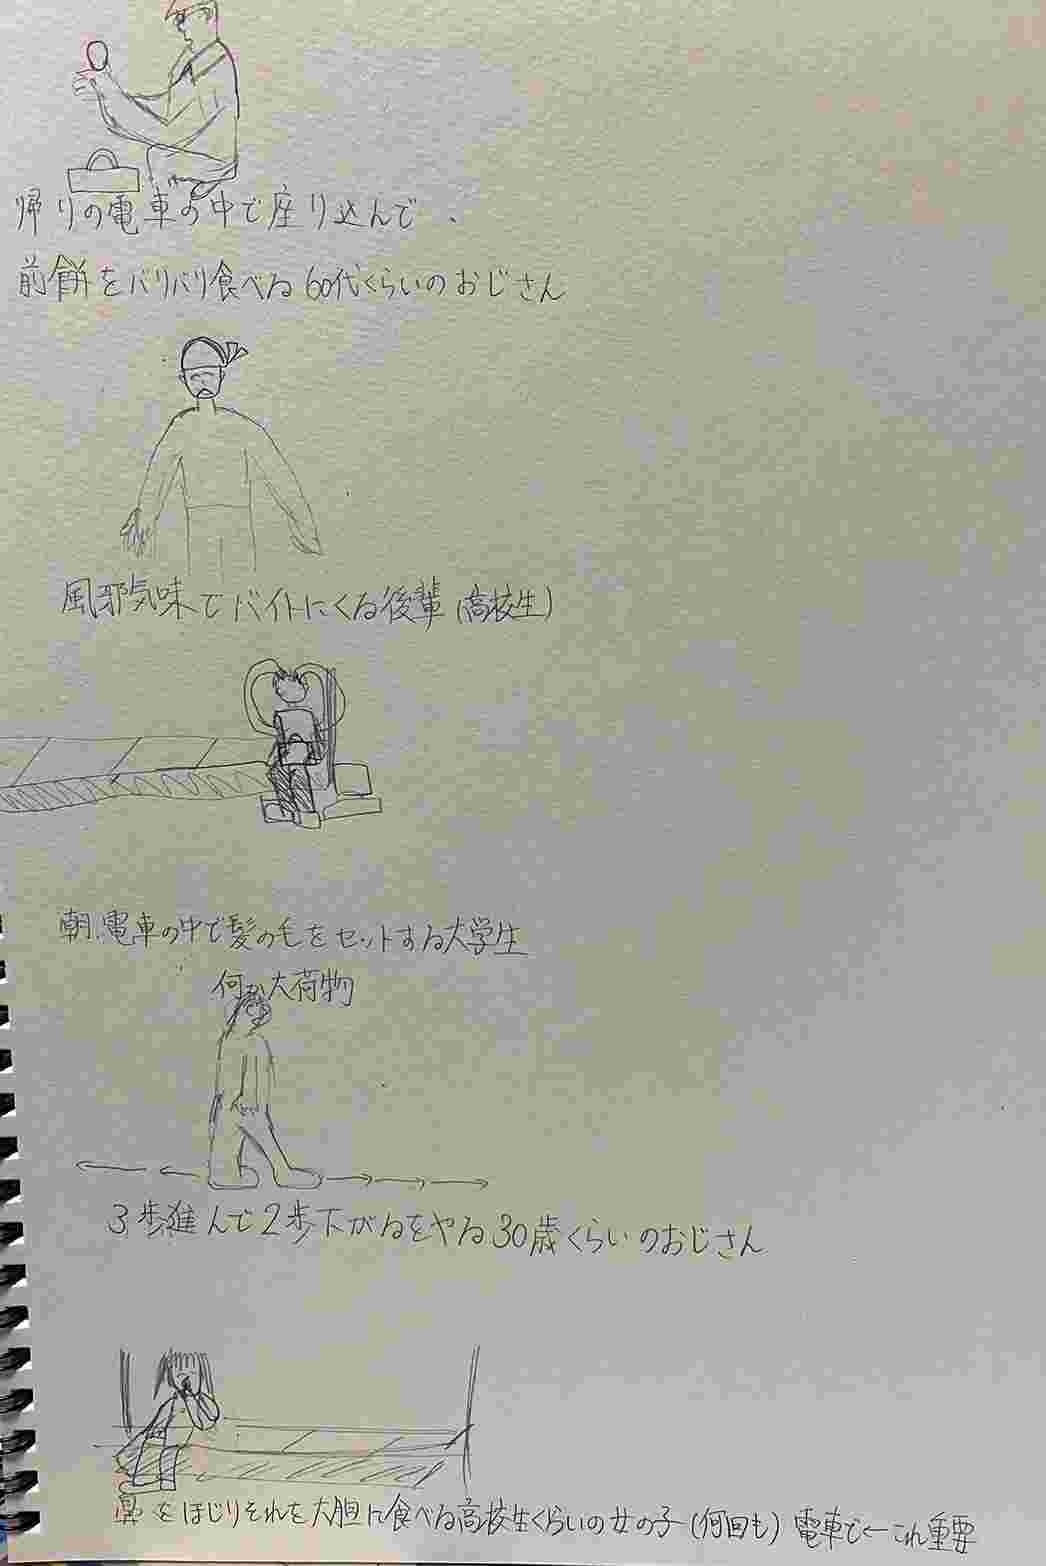 帰りの電車の中で座り込んで、
前餅をバリバリ食べる60代くらいのおじさん
風邪気味でバイトにくる後輩(高校生)
朝、電車の中で髪の毛をセットする大学生
何か大荷物
3歩進んで2歩下がるをヤる30歳くらいのおじさん
鼻をほじりそれを大胆に食べる高校生くらいの女の子(何回も)電車で←これ重要